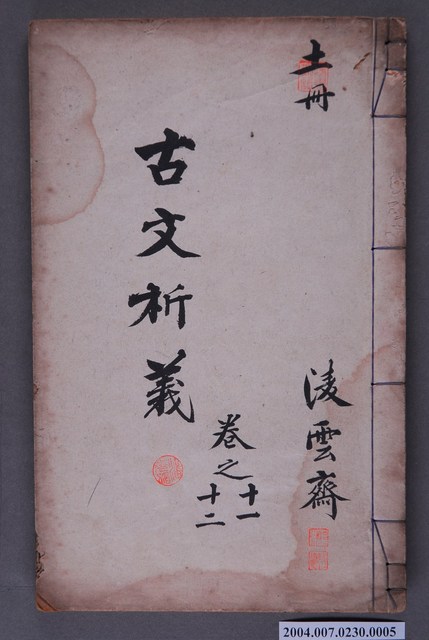 土冊
淩雲齋
古文析義
卷之十一
十二
2004.007.0230.0005